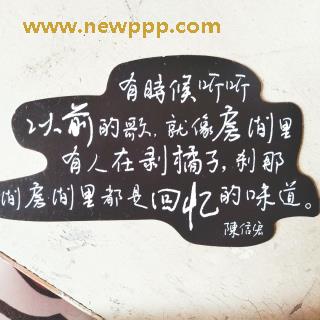 www.newppp.com
有時候听听
以前的歌，就像房间里
有人在剥橘子，刹那
间房间里都是回忆的味道。
陳信宏